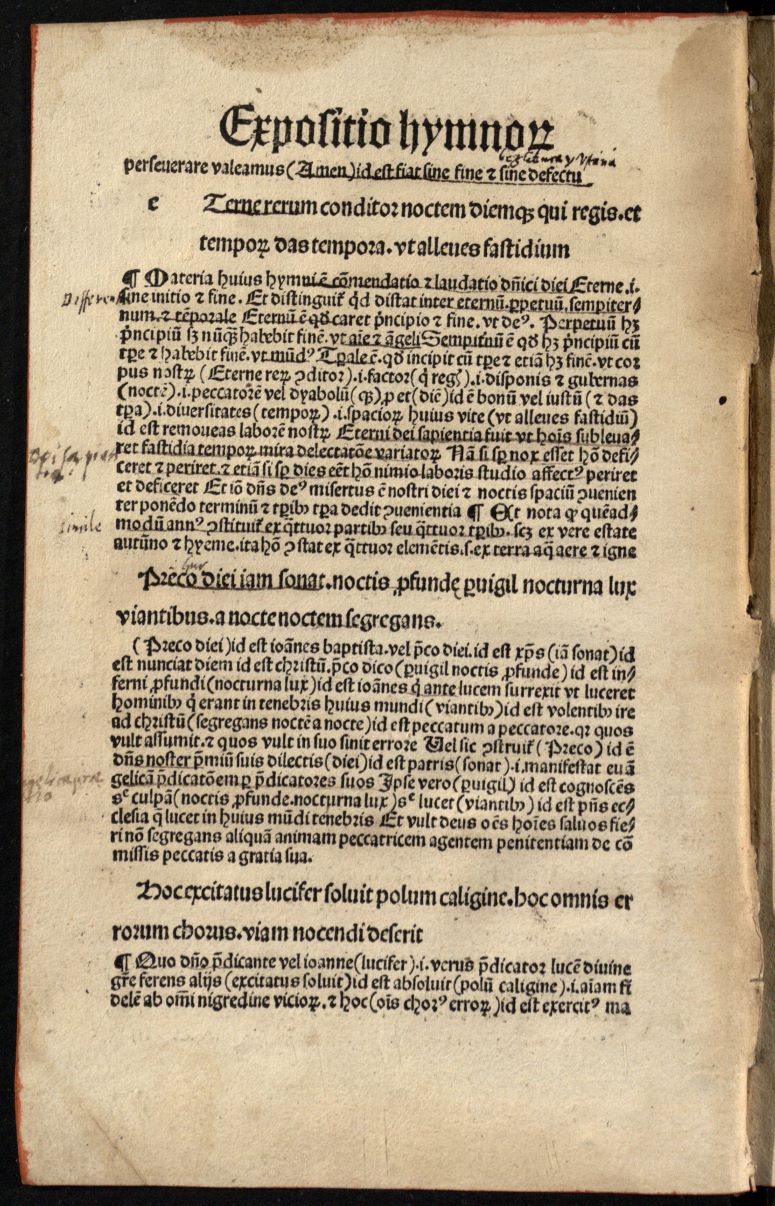 Expositio hymnoꝝ
perseuerare valeamus (Amen) id est fiat sine fine ⁊ sine defectu
e Terne rerum conditor noctem diemqꝫ qui regis. et
tempoꝝ das tempora. vt alleues fastidium
¶ Materia huius hymni ē cōmendatio ⁊ laudatio dn̄ici diei Eterne .i.
sine initio ⁊ fine. Et distinguit̄ qd̄ distat inter eternū. ꝑpetuū. sempiter⸗
num. ⁊ tēporale Eternū ē qd̄ caret pͥncipio ⁊ fine. vt deꝰ. Perpetuū hꝫ
pͥncipiū sꝫ nūqꝫ habebit finē. vt aīe ⁊ āgeli Sempitn̄ū ē qd̄ hꝫ pͥncipiū cū
tꝑe ⁊ habebit finē. vt mūdꝰ Tꝑale ē. qd̄ incipit cū tꝑe ⁊ etiā hꝫ finē. vt cor
pus nostꝝ (Eterne reꝝ ꝯditor) .i. factor (q̇ regꝭ) .i. disponis ⁊ gubernas
(noctē) .i. peccatorē vel dyabolū (qꝫ) ꝓ et (diē) id ē bonū vel iustū (⁊ das
tꝑa) .i. diuersitates (tempoꝝ) .i. spacioꝝ huius vite (vt alleues fastidiū)
id est remoueas laborē nostꝝ Eterni dei sapientia fuit vt hoīs subleua⸗
ret fastidia tempoꝝ mira delectatōe variatoꝝ Nā si sꝑ nox esset hō defi⸗
ceret ⁊ periret. ⁊ etiā si sꝑ dies eēt hō nimio laboris studio affectꝰ periret
et deficeret Et iō dn̄s deꝰ misertus ē nostri diei ⁊ noctis spaciū ꝯuenien
ter ponēdo terminū ⁊ tꝑibꝫ tꝑa dedit ꝯuenientia ¶ Et nota qꝙ quēad⸗
modū annꝰ ꝯstituit̄ ex q̄ttuor partibꝫ seu q̄ttuor tꝑibꝫ. scꝫ ex vere estate
autūno ⁊ hyeme. ita hō ꝯstat ex q̄ttuor elemētis .s. ex terra aq̄ aere ⁊ igne
simile
Preco diei iam sonat. noctis ꝓfundę ꝑuigil nocturna lux
viantibus. a nocte noctem segregans.
(Preco diei) id est ioānes baptista. vel p̄co diei. id est xp̄s (iā sonat) id
est nunciat diem id est christū. p̄co dico (ꝑuigil noctis ꝓfunde) id est in⸗
ferni ꝓfundi (nocturna lux) id est ioānes q̇ ante lucem surrexit vt luceret
hominibꝫ q̇ erant in tenebris huius mundi (viantibꝫ) id est volentibꝫ ire
ad christū (segregans noctē a nocte) id est peccatum a peccatore. qꝛ quos
vult assumit. ⁊ quos vult in suo sinit errore Uel sic ꝯstruit̄ (Preco) id ē
dn̄s noster p̄miū suis dilectis (diei) id est patris (sonat) .i. manifestat euā
gelicā p̄dicatōem ꝑ p̄dicatores suos Ipse vero (ꝑuigil) id est cognoscēs
sͤ culpā (noctis ꝓfunde. nocturna lux) sͤ lucet (viantibꝫ) id est pn̄s ec⸗
clesia q̄ lucet in huius mūdi tenebris Et vult deus oēs hoīes saluos fie⸗
ri nō segregans aliquā animam peccatricem agentem penitentiam de cō
missis peccatis a gratia sua.
Hoc excitatus lucifer soluit polum caligine. hoc omnis er
rorum chorus. viam nocendi deserit
¶ Quo dn̄o p̄dicante vel ioanne (lucifer) .i. verus p̄dicator lucē diuine
gr̄e ferens alijs (excitatus soluit) id est absoluit (polū caligine) .i. aīam fi
delē ab om̄i nigredine vicioꝝ. ⁊ hoc (oīs chorꝰ erroꝝ) id est exercitꝰ ma